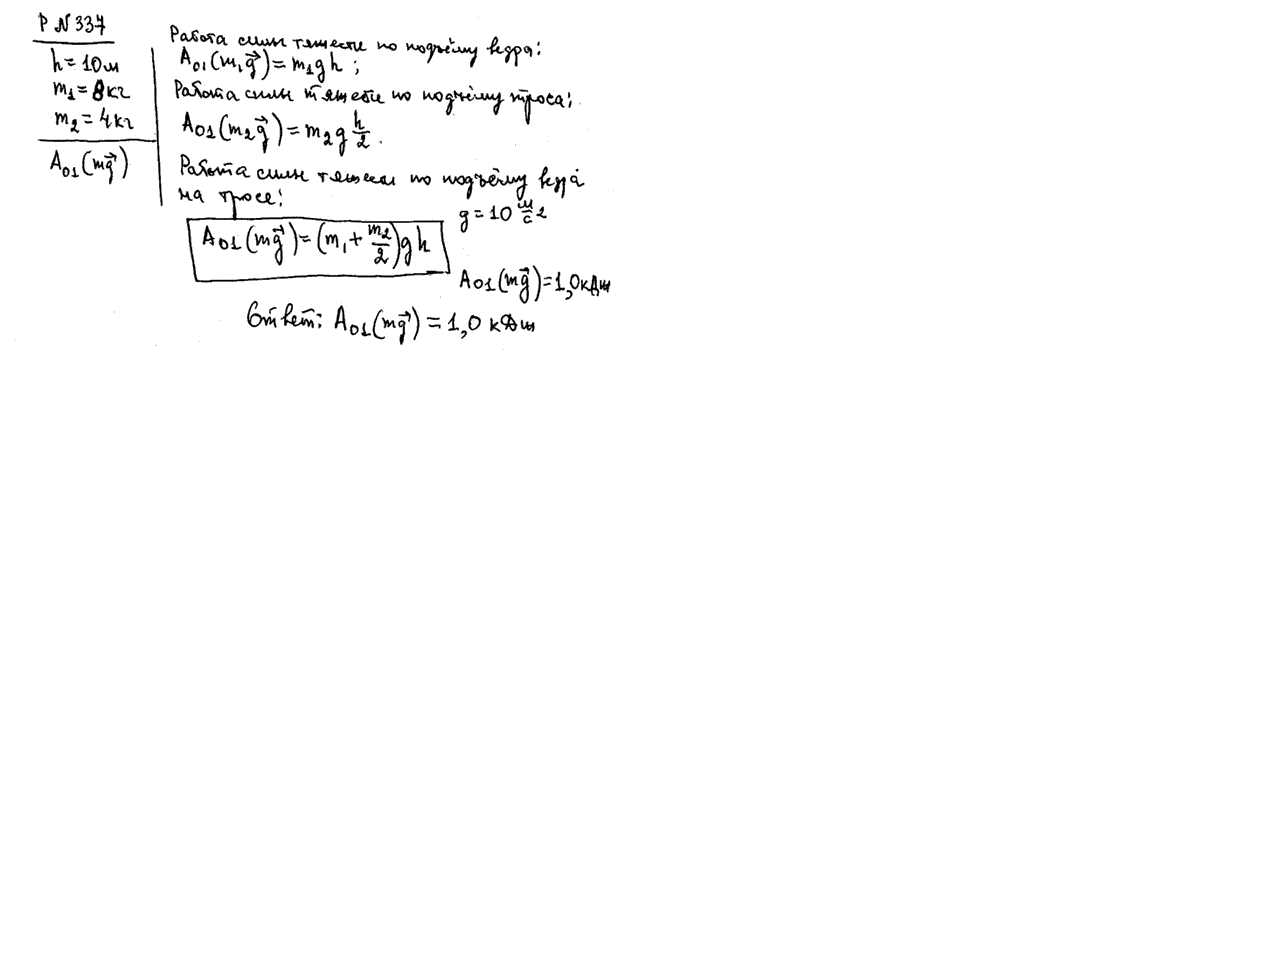 Р N 337
h = 10 м
m₁ = 8 кг
m₂ = 4 кг
A₀₁(mg⃗)
Работа силы тяжести по подъёму ведра:
A₀₁(m₁g⃗) = m₁gh;
Работа силы тяжести по подъёму троса:
A₀₁(m₂g⃗) = m₂g h/2.
Работа силы тяжести по подъёму ведра
на тросе:
A₀₁(mg⃗) = (m₁ + m₂/2)gh
g = 10 м/с²
A₀₁(mg⃗) = 1,0 кДж
Ответ: A₀₁(mg⃗) = 1,0 кДж